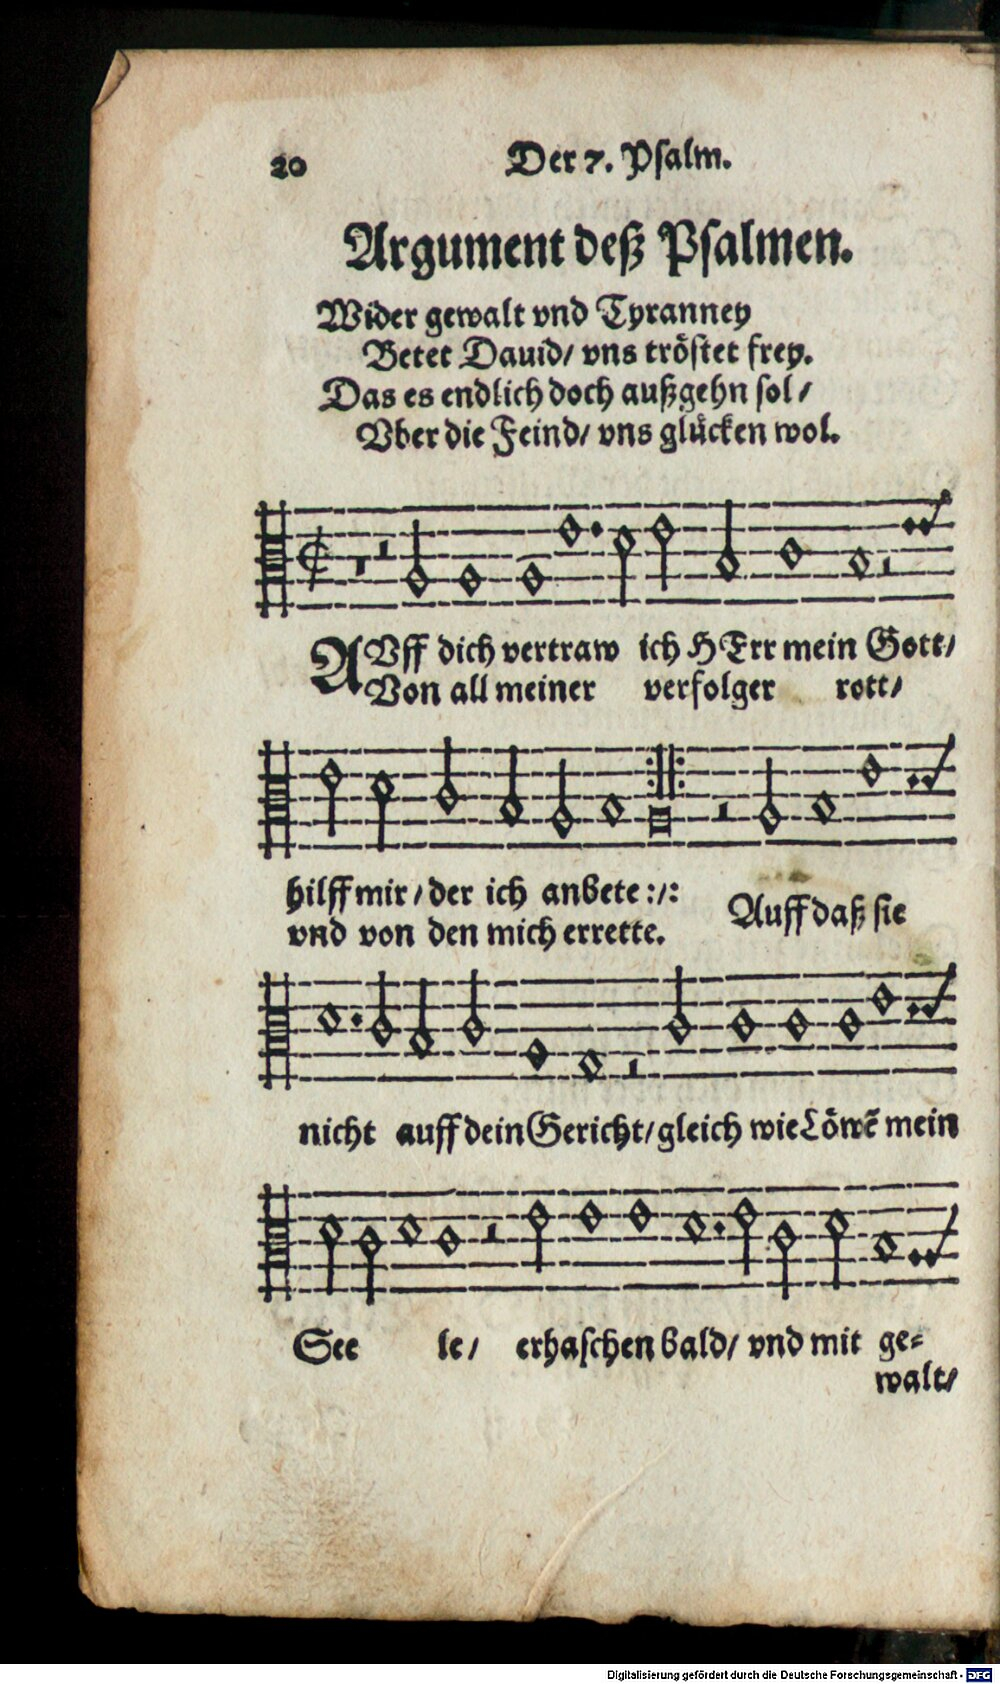 20 Der 7. Psalm.
Argument deß Psalmen.
Wider gewalt vnd Tyranney
Betet Dauid/ vns tröstet frey.
Das es endlich doch außgehn sol/
Vber die Feind/ vns glücken wol.
AVff dich vertraw ich HErr mein Gott/
Von all meiner verfolger rott/
hilff mir/ der ich anbete :/:
vnd von den mich errette.
Auff daß sie
nicht auff dein Gericht/ gleich wie Löwē mein
See le/ erhaschen bald/ vnd mit ge=
walt/
Digitalisierung gefördert durch die Deutsche Forschungsgemeinschaft - DFG